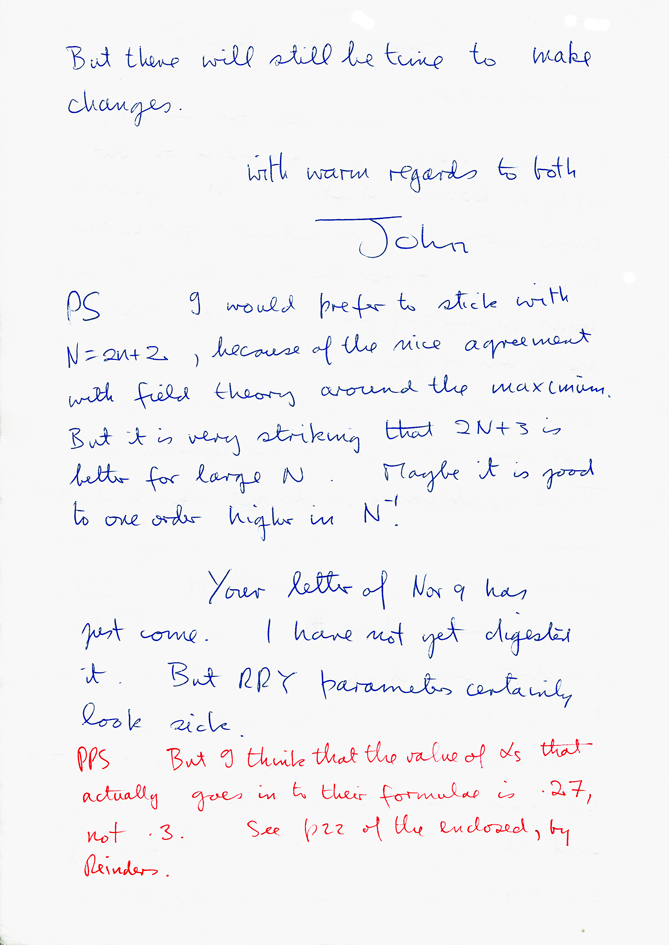 But there will still be time to make
changes.
with warm regards to both
John
PS I would prefer to stick with
N=2n+2, because of the nice agreement
with field theory around the maximum.
But it is very striking that 2N+3 is
better for large N. Maybe it is good
to one order higher in N⁻¹.
Your letter of Nov 9 has
just come. I have not yet digested
it. But RRY parameters certainly
look sick.
PPS But I think that the value of αs that
actually goes in to their formulae is .27,
not .3. See p22 of the enclosed, by
Reinders.